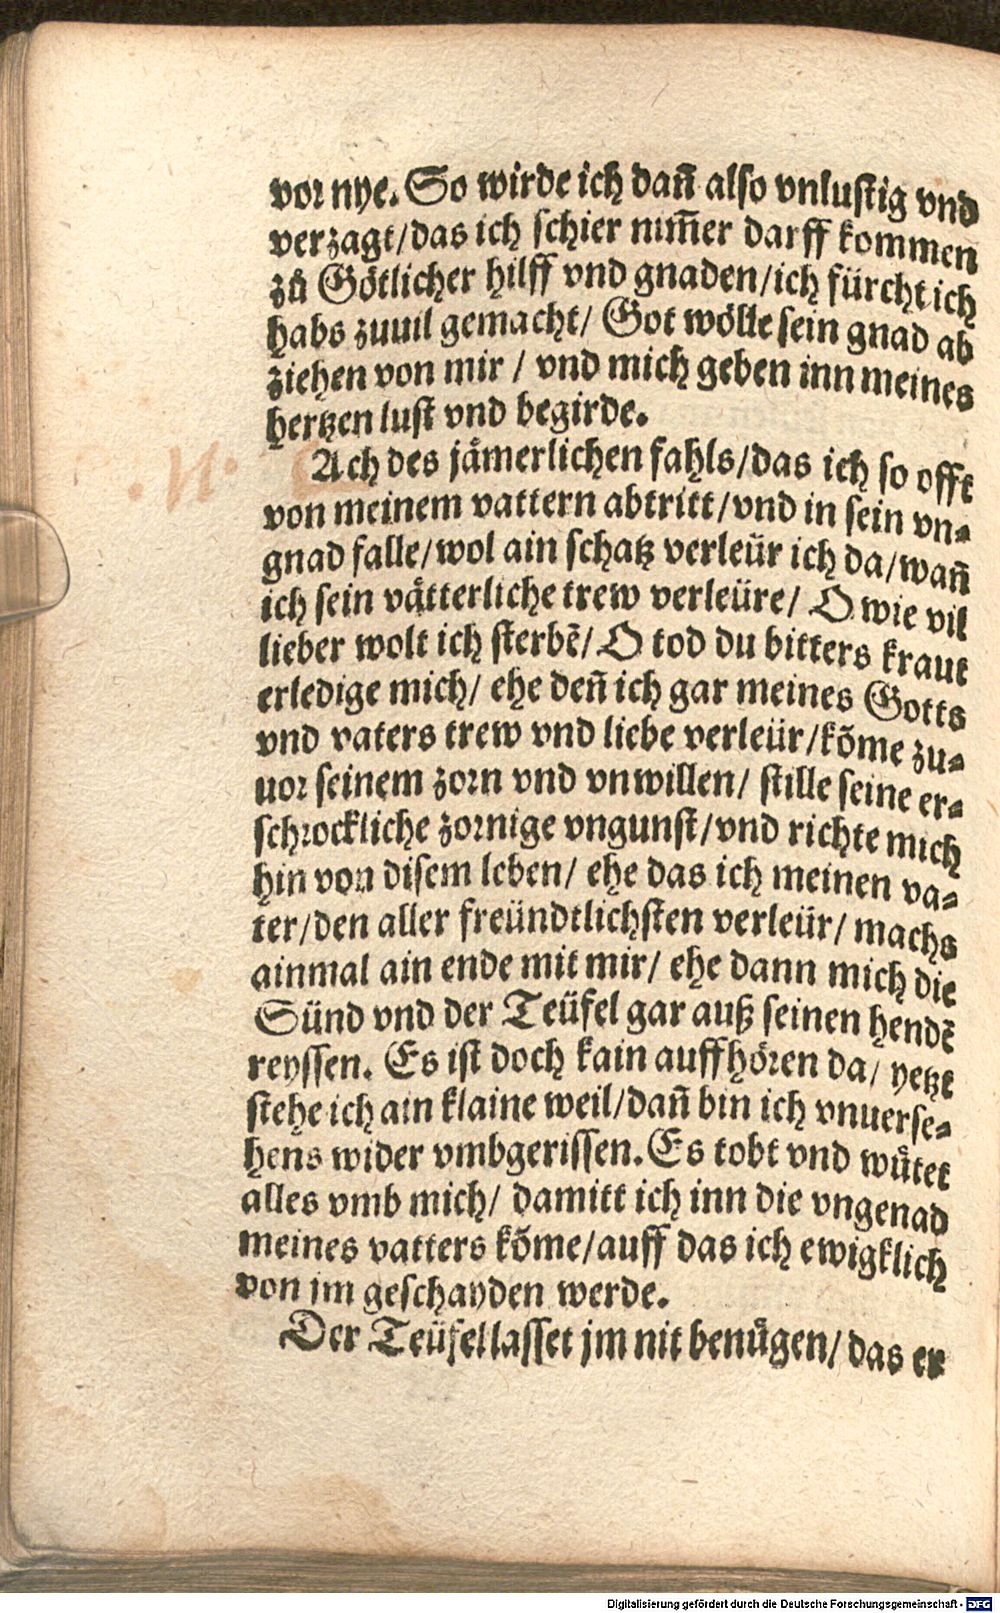 vor nye. So wirde ich dañ also vnlustig vnd
verzagt/das ich schier nim̃er darff kommen
zů Götlicher hilff vnd gnaden/ich fürcht ich
habs zuuil gemacht/ Got wölle sein gnad ab
ziehen von mir / vnd mich geben inn meines
hertzen lust vnd begirde.
Ach des jämerlichen fahls/das ich so offt
von meinem vattern abtritt/vnd in sein vn⸗
gnad falle/wol ain schatz verleür ich da/wañ
ich sein vätterliche trew verleüre/ O wie vil
lieber wolt ich sterbẽ/ O tod du bitters kraut
erledige mich/ ehe deñ ich gar meines Gotts
vnd vaters trew vnd liebe verleür/kõme zu⸗
uor seinem zorn vnd vnwillen/ stille seine er⸗
schrockliche zornige vngunst/vnd richte mich
hin von disem leben/ ehe das ich meinen va⸗
ter/den aller freündtlichsten verleür/ machs
ainmal ain ende mit mir/ ehe dann mich die
Sünd vnd der Teüfel gar auß seinen hendẽ
reyssen. Es ist doch kain auffhören da/ yetzt
stehe ich ain klaine weil/dañ bin ich vnuerse⸗
hens wider vmbgerissen. Es tobt vnd wütet
alles vmb mich/ damitt ich inn die vngenad
meines vatters kõme/auff das ich ewigklich
von jm geschayden werde.
Der Teüfel lasset jm nit benügen/ das er
Digitalisierung gefördert durch die Deutsche Forschungsgemeinschaft - DFG